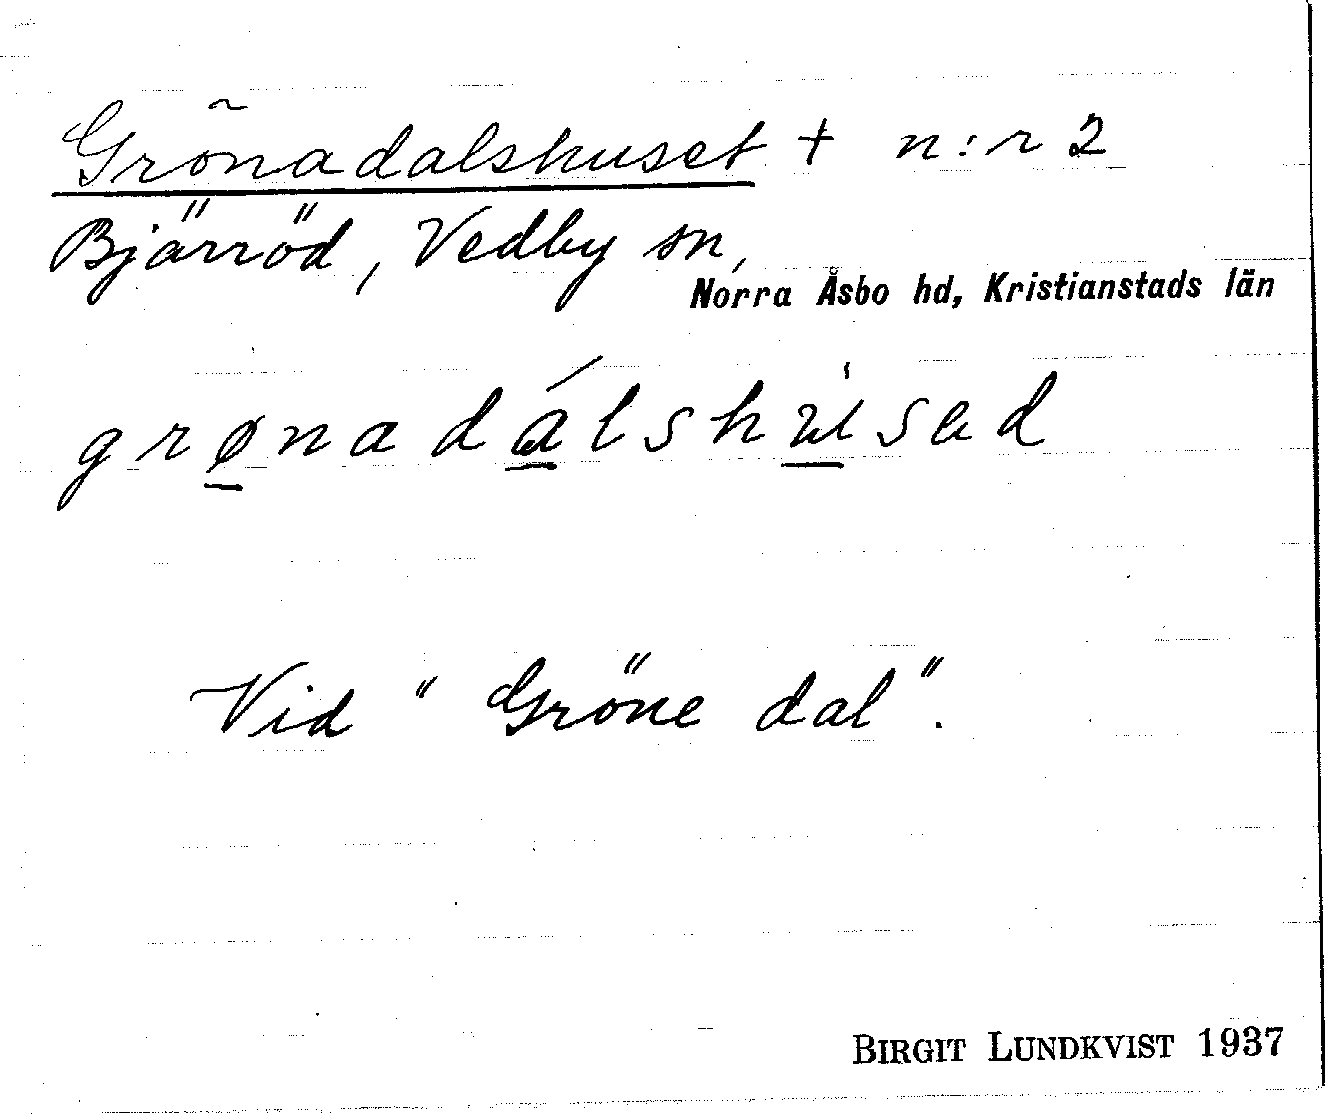 Grönadalshuset † n:r 2
Bjärröd, Vedby sn,
Norra Åsbo hd, Kristianstads län
grønadálshùsad
Vid "Gröne dal".
BIRGIT LUNDKVIST 1937